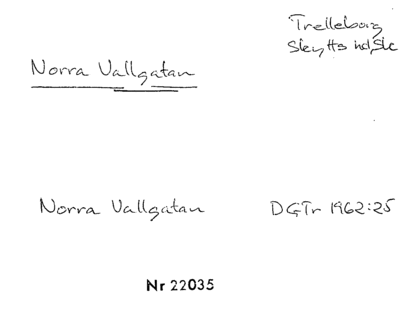 Norra Vallgatan
Trelleborg
Skytts hd, Sk
Norra Vallgatan DGTr 1962:25
Nr 22035